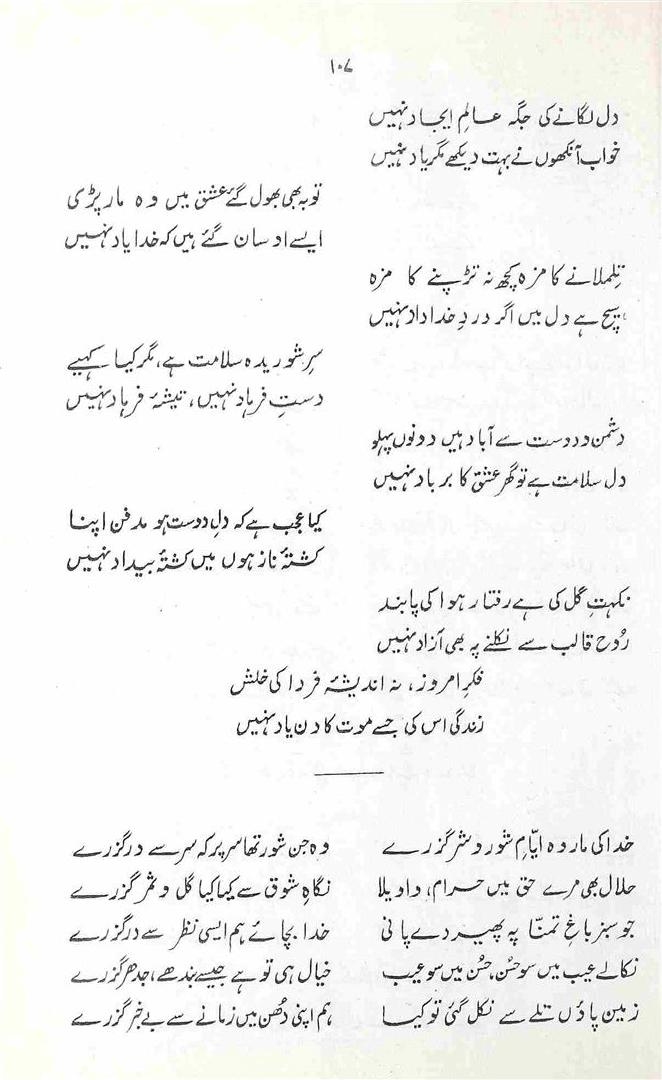 ۱۰۷
دل لگانے کی جگہ عالمِ ایجاد نہیں
خواب آنکھوں نے بہت دیکھے مگر یاد نہیں
توبہ بھی بھول گئے عشق میں وہ مار پڑی
ایسے اوسان گئے ہیں کہ خدا یاد نہیں
تِلملانے کا مزہ کچھ نہ تڑپنے کا مزہ
ہیچ ہے دل میں اگر دردِ خداداد نہیں
سرِ شوریدہ سلامت ہے، مگر کیا کہیے
دستِ فرہاد نہیں، تیشۂ فرہاد نہیں
دشمن و دوست سے آباد ہیں دونوں پہلو
دل سلامت ہے تو گھر عشق کا برباد نہیں
کیا عجب ہے کہ دلِ دوست ہو مدفن اپنا
کشتۂ ناز ہوں میں کشتۂ بیداد نہیں
نکہتِ گل کی ہے رفتار ہوا کی پابند
رُوح قالب سے نکلنے پہ بھی آزاد نہیں
فکرِ امروز، نہ اندیشۂ فردا کی خلش
زندگی اس کی جسے موت کا دن یاد نہیں
خدا کی مار وہ ایّامِ شور و شر گزرے
وہ جن شور تھا سر پر کہ سر سے در گزرے
حلال بھی مرے حق میں حرام، واویلا
نگاہِ شوق سے کیا کیا گل و ثمر گزرے
جو سبز باغِ تمنّا پہ پھیر دے پانی
خدا بچائے ہم ایسی نظر سے درگزرے
نکالے عیب میں سو حُسن، حُسن میں سو عیب
خیال ہی تو ہے جیسے بندھے، جدھر گزرے
زمین پاؤں تلے سے نکل گئی تو کیا
ہم اپنی دُھن میں زمانے سے بے خبر گزرے